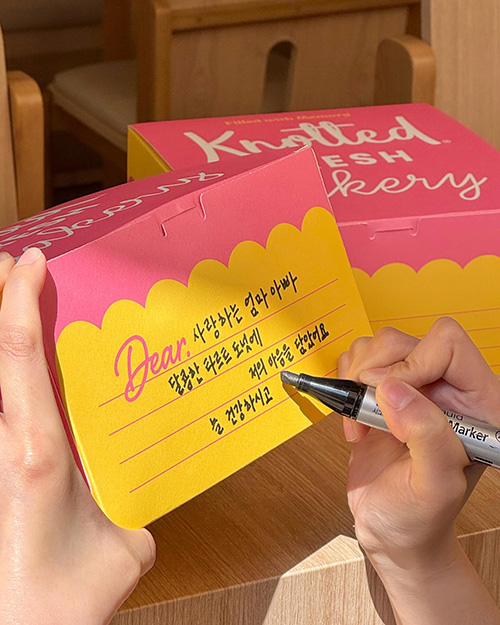 Filled with Memory
Knotted
FRESH
Bakery
Dear. 사랑하는 엄마 아빠
달콤한 타르트 도넛에
저의 마음을 담았어요
늘 건강하시고
Marker